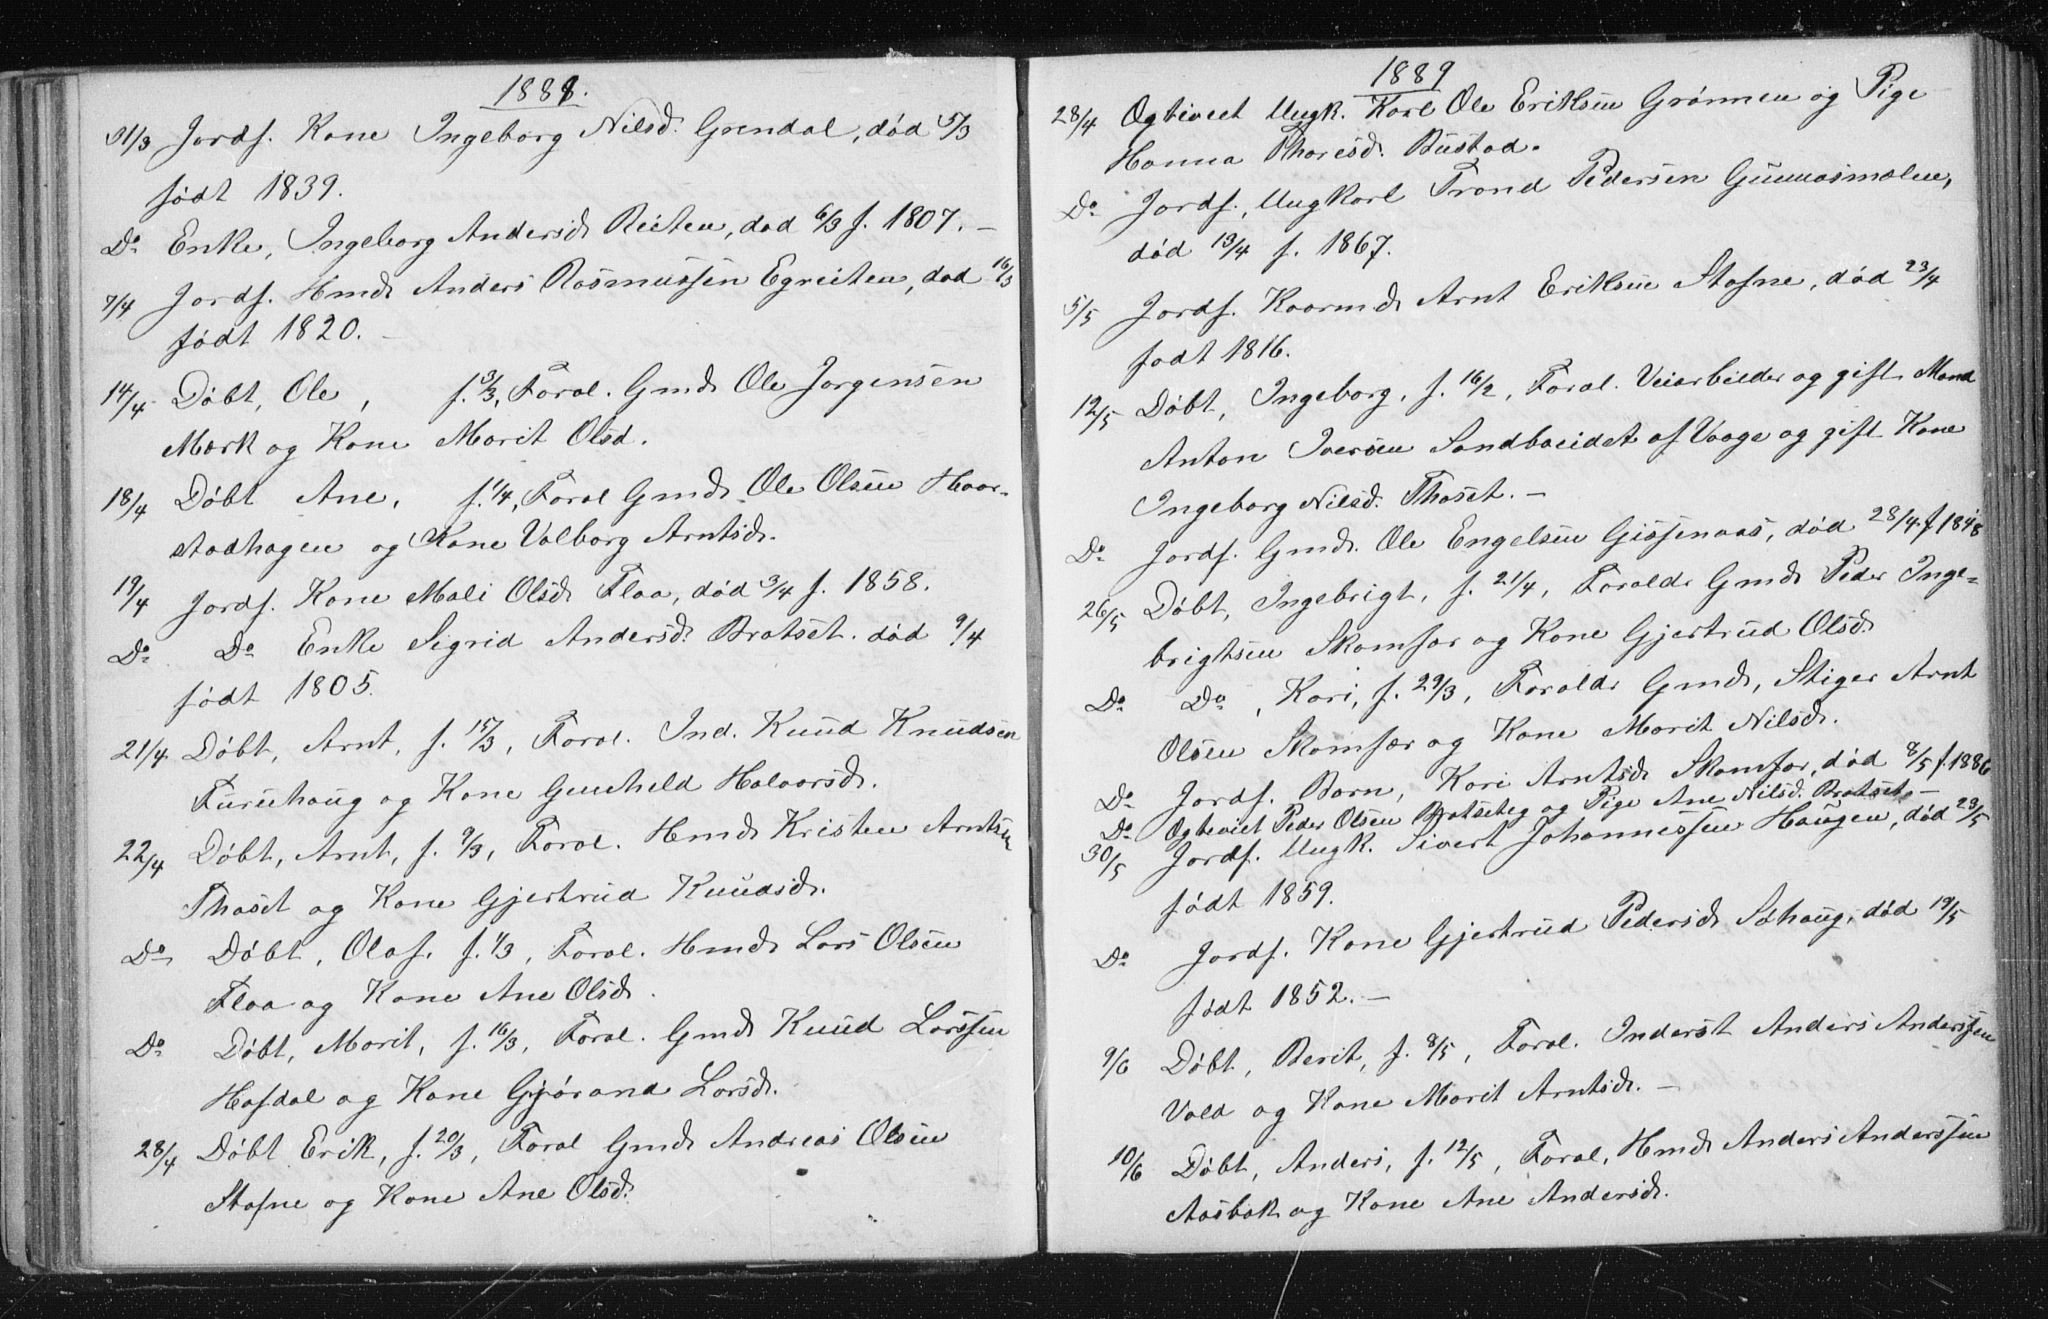 1888.
31/3 Jordf. Kone Ingeborg Nilsd. Grendal, død 5/3
født 1839.
Do Enke, Ingeborg Andersd. Reiten, død 6/3 f. 1807. —
7/4 Jordf. Hmd. Anders Rasmussen Egreiten, død 16/3
født 1820. —
14/4 Døbt, Ole, f. 3/3, Foræl. Gmd. Ole Jørgensen
Mærk og Kone Marit Olsd.
18/4 Døbt Ane, f. 1/4, Foræl Gmd. Ole Olsen Haar-
stadhagen og Kone Valborg Arntsd.
19/4 Jordf. Kone Mali Olsd. Flaa, død 3/4 f. 1858.
Do Do Enke Sigrid Andersd. Bratset. død 9/4
født 1805.
21/4 Døbt, Arnt, f. 15/3, Foræl. Ind. Knud Knudsen
Furuhaug og Kone Gunheld Halvorsd.
22/4 Døbt, Arnt, f. 9/3, Foræl. Hmd. Kristen Arntsen
Thoset og Kone Gjertrud Knudsd.
Do Døbt, Olaf. f. 1/3, Foræl. Hmd. Lars Olsen
Flaa og Kone Ane Olsd.
Do Døbt, Marit, f. 16/3, Foræl. Gmd. Knud Larssen
Hafdal og Kone Gjørand Larsd.
28/4 Døbt Erik, f. 20/3, Foræl Gmd. Andreas Olsen
Stafne og Kone Ane Olsd.
1889
28/4 Ogteviet Ungk. Karl Ole Eriksen Grønnen og Pige
Hanna Thoresd. Bustad.
Do Jordf., Ungkarl Trond Pedersen Gunnasmælen,
død 13/4 f. 1867.
5/5 Jordf. Kaarmd. Arnt Eriksen Stafne, død 23/4
født 1816.
12/5 Døbt, Ingeborg, f. 16/2, Foræl. Veiarbeider og gift Mand
Anton Iversen Sandbueidet af Vaage og gift Kone
Ingeborg Nilsd. Thoset. —
Do Jordf. Gmd. Ole Engelsen Gissenaas, død 28/4 f 1848
26/5 Døbt, Ingebrigt, f. 21/4, Forældr Gmd. Peder Inge-
brigtsen Skamfær og Kone Gjertrud Olsd.
Do Do, Kari, f. 29/3, Forældr Gmd., Stiger Arnt
Olsen Skamfær og Kone Marit Nilsd.
Do Jordf. Barn, Kari Arntsd. Skamfær, død 8/5 f. 1886
Do Ogteviet Peder Olsen Bratseteg og Pige Ane Nilsd. Bratset —
30/5 Jordf. Ungk. Sivert Johannessen Haugen, død 23/5
født 1859.
Do Jordf. Kone Gjertrud Pedersd. Søhaug, død 19/5
født 1852. —
9/6 Døbt, Berit, f. 8/5, Foræl. Inderst Anders Anderssen
Vold og Kone Marit Arntsd. —
10/6 Døbt, Anders, f. 12/5, Foræl, Hmd. Anders Anderssen
Aasbak og Kone Ane Andersd.